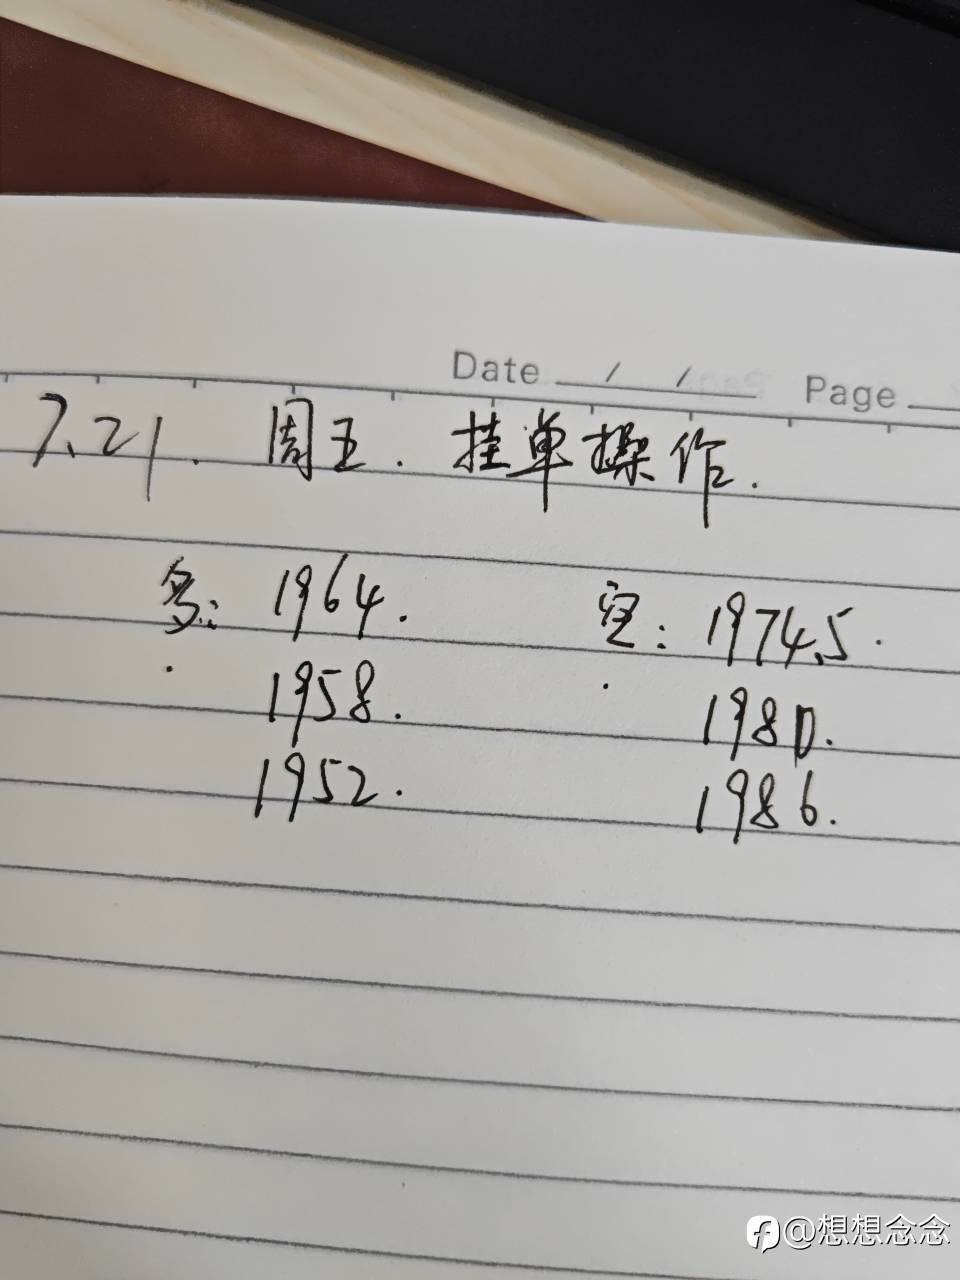 Date / / Page
7.21. 周五. 挂单操作.
多: 1964. 空: 1974.5.
1958. 1980.
1952. 1986.
@想想念念